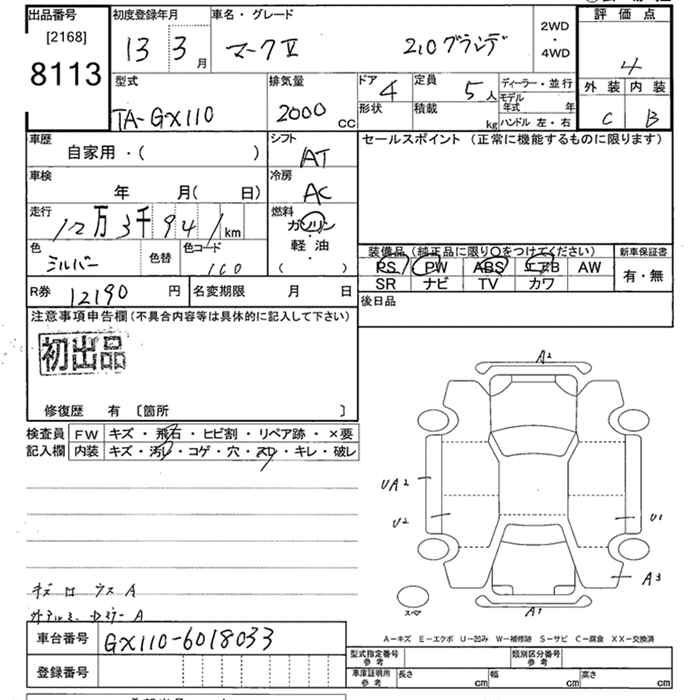 出品番号 初度登録年月 車名・グレード 評価点
[2168]
8113
13 3月 マークⅡ 2.0グランデ 2WD・4WD 4
型式 排気量 ドア 定員 ディーラー・並行 外装 内装
TA-GX110 2000cc 4 5人 C B
形状 積載 kg モデル年式 年
ハンドル 左・右
車歴 シフト セールスポイント (正常に機能するものに限ります)
自家用・( ) AT
車検 冷房
年 月( 日) AC
走行 燃料
12万3千941km ガソリン
軽・油
( )
色 色替 色コード
シルバー 160
装備品 (純正品に限り○をつけてください) 新車保証書
PS PW ABS エアB AW 有・無
SR ナビ TV カワ
R券 12190円 名変期限 月 日 後日品
注意事項申告欄 (不具合内容等は具体的に記入して下さい)
初出品
修復歴 有 〔箇所 〕
検査員 FW キズ・飛石・ヒビ割・リペア跡・×要
記入欄 内装 キズ・汚レ・コゲ・穴・スレ・キレ・破レ
A2
UA2
U2
U1
A3
A1
スペア
A
A
A－キズ E－エクボ U－凹み W－補修跡 S－サビ C－腐食 XX－交換済
車台番号 GX110-6018033
登録番号
型式指定番号 参考 類別区分番号 参考
車庫証明用 参考 長さ cm 幅 cm 高さ cm